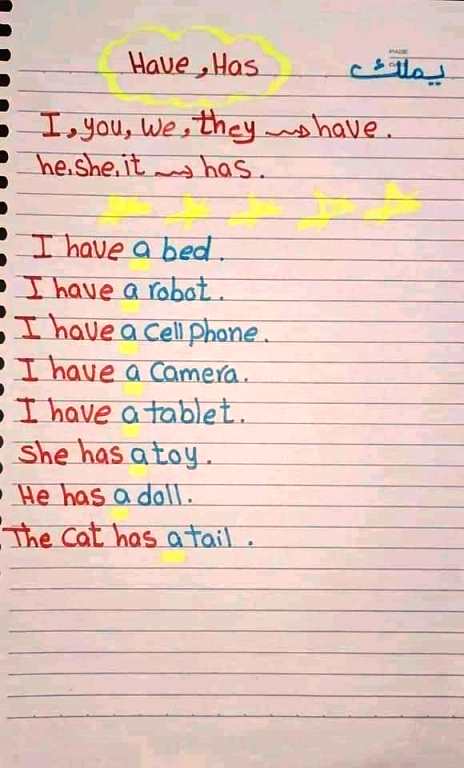 Have, Has يملك
I, you, we, they ⟿ have.
he, she, it ⟿ has.
I have a bed.
I have a robot.
I have a cell phone.
I have a camera.
I have a tablet.
She has a toy.
He has a doll.
The cat has a tail.